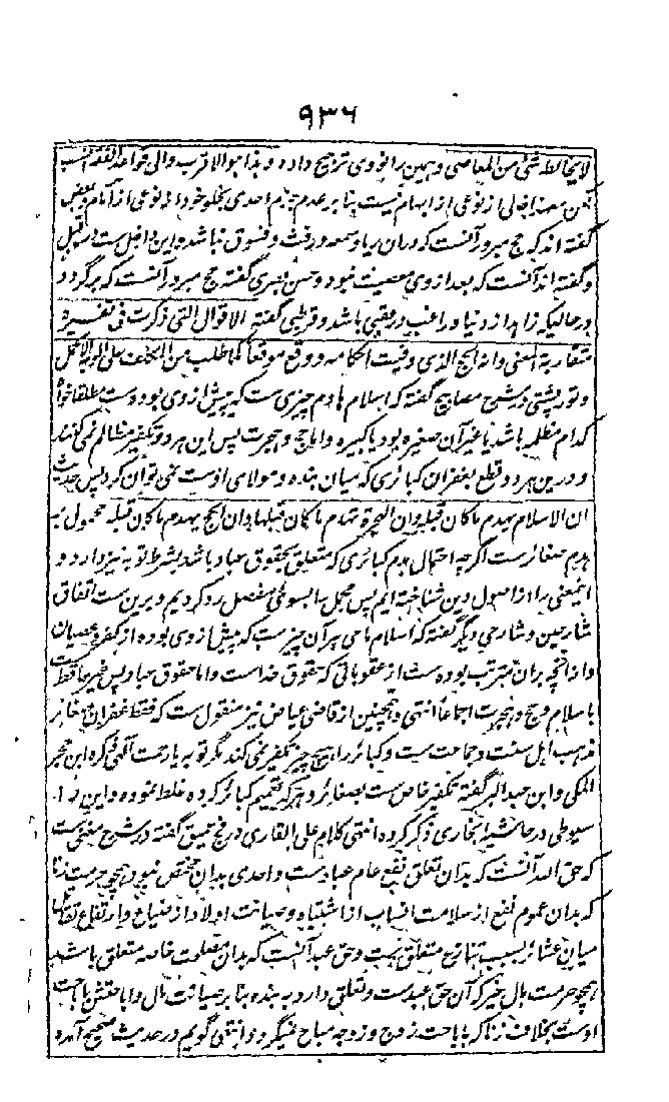 ۹۳۶
لا یخالطه شئ من المعاصی و همین را نووی ترجیح داده و هذا هو الاقرب والی قواعد الفقه انسب
لکن معهذا خالی از نوعی از ابهام نیست بنا بر عدم جزم احدی بخلو خود از نوعی از آثام و بعضی
گفته اند که حج مبرور آنست که دران ریا و سمعه و رفث و فسوق نباشد و این داخل ست در قبل
و گفته اند آنست که بعد از وی معصیت نبود و حسن بصری گفته حج مبرور آنست که برگردد
در حالیکه زاهد از دنیا و راغب در عقبی باشد و قرطبی گفته الاقوال التی ذکرت فی تفسیره
متقاربة المعنی وانه الحج الذی وفیت احکامه ووقع موقعا کما طلب من المکلف علی الوجه الاکمل
و تورپشتی در شرح مصابیح گفته که اسلام هادم چیزی ست که پیش از وی بوده ست مطلقا خواه
کدام مظلمه باشد یا غیر آن صغیره بود یا کبیره و اما حج و هجرت پس این هر دو تکفیر مظالم نمی کنند
و درین هر دو قطع بغفران کبائری که میان بنده و مولای اوست نمی توان کرد پس حدیث
ان الاسلام یهدم ما کان قبله وان الهجرة تهدم ما کان قبلها وان الحج یهدم ما کان قبله محمول بر
هدم صغائرست اگرچه احتمال هدم کبائری که متعلق بحقوق عباد باشد بشرط توبه نیز دارد و
اینمعنی را از اصول دین شناخته ایم پس مجمل را بسوی مفصل رد کردیم و برین ست اتفاق
شارحین و شارحی دیگر گفته که اسلام ماحی هر آن چیزست که پیش از وی بوده از کفر و عصیان
و از آنچه بران مترتب بوده ست از عقوباتی که حقوق خداست و اما حقوق عباد پس غیر ساقط ست
باسلام و حج و هجرت اجماعا انتهی و همچنین از قاضی عیاض نیز منقول ست که فقط غفران صغائر
مذهب اهل سنت و جماعت ست و کبائر را هیچ چیز تکفیر نمی کند مگر توبه یا رحمت آلهی ذکره ابن حجر
المکی و ابن عبد البر گفته تکفیر خاص ست بصغائر و هر که تعمیم کبائر کرده غلط نموده و این را
سیوطی در حاشیه بخاری ذکر کرده انتهی کلام علی القاری و فج عمیق گفته در شرح مغنی ست
که حق الله آنست که بدان تعلق نفع عام عبادست و احدی بدان مختص نبود همچو حرمت زنا
که بدان عموم نفع از سلامت انساب از اشتباه و صیانت اولاد از ضیاع و ارتفاع تقاتل
میان عشائر بسبب تنازع متعلق ست و حق عبد آنست که بدان مصلحت خاصه متعلق باشد
همچو حرمت مال غیر که آن حق عبدست و تعلق دارد به بنده بنا بر صیانت مال و اباحتش باباحت
اوست بخلاف زنا که باباحت زوج و زوجه مباح نمیگردد انتهی گویم در حدیث صحیح آمده